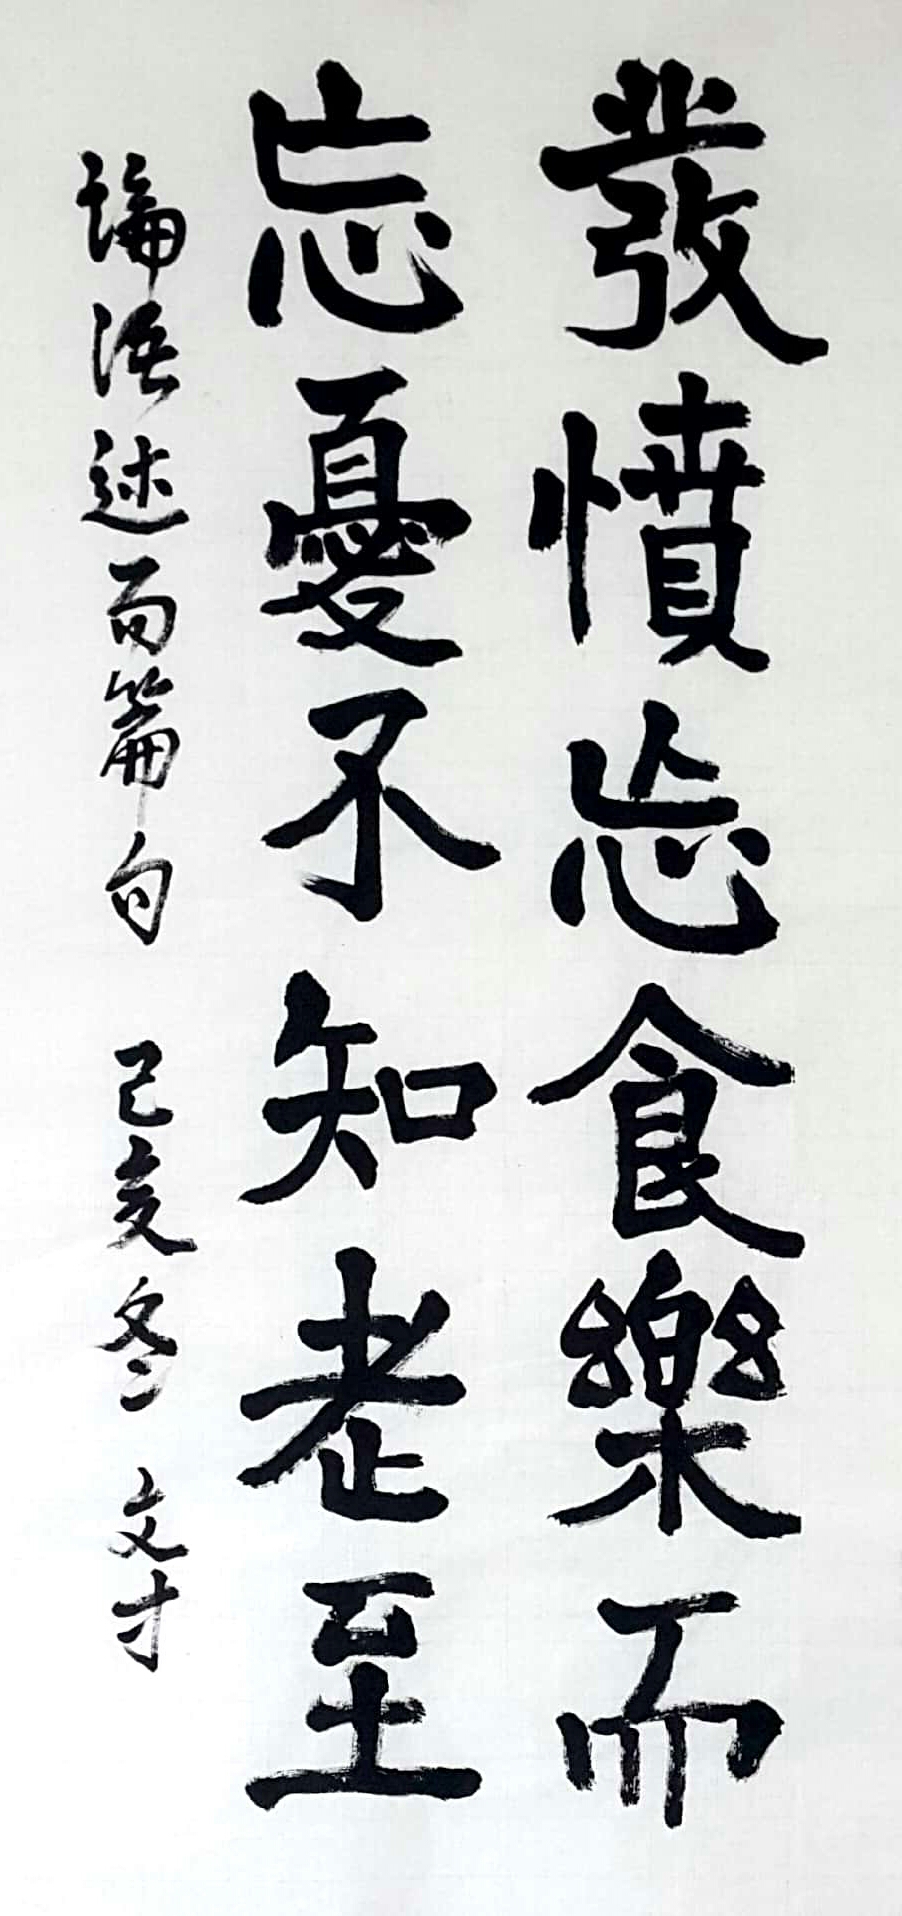 發憤忘食樂而
忘憂不知老至
論語述而篇句 己亥冬 文才